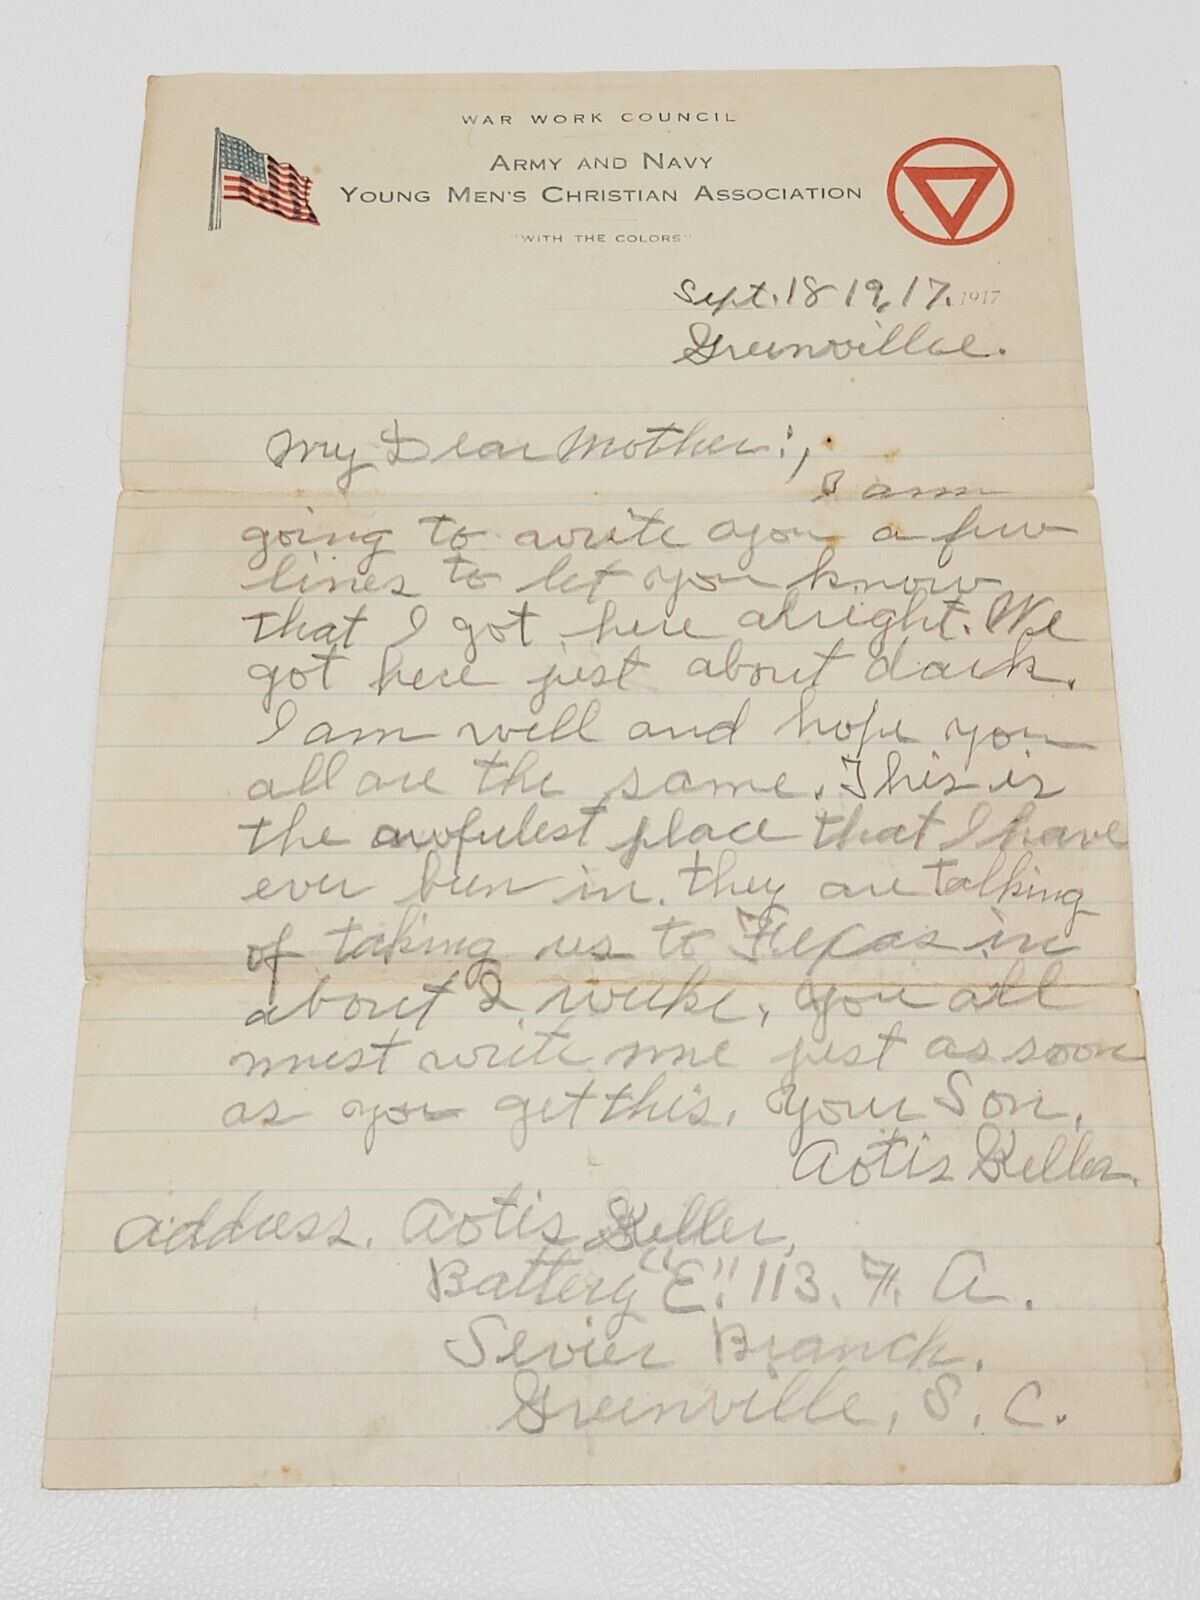 WAR WORK COUNCIL
ARMY AND NAVY
YOUNG MEN'S CHRISTIAN ASSOCIATION
"WITH THE COLORS"
Sept. 18 19,17. 1917
Greenvillee.
My Dear Mother:,
I am
going to write you a few
lines to let you know
that I got here alright. We
got here just about dark.
I am well and hope you
all are the same. This is
the awfulest place that I have
ever been in. they are talking
of taking us to Texas in
about 2 weeks. you all
must write me just as soon
as you get this. Your Son,
Aotis Keller.
address. Aotis Keller,
Battery "E" 113. F. A.
Sevier Branch.
Greenville, S. C.